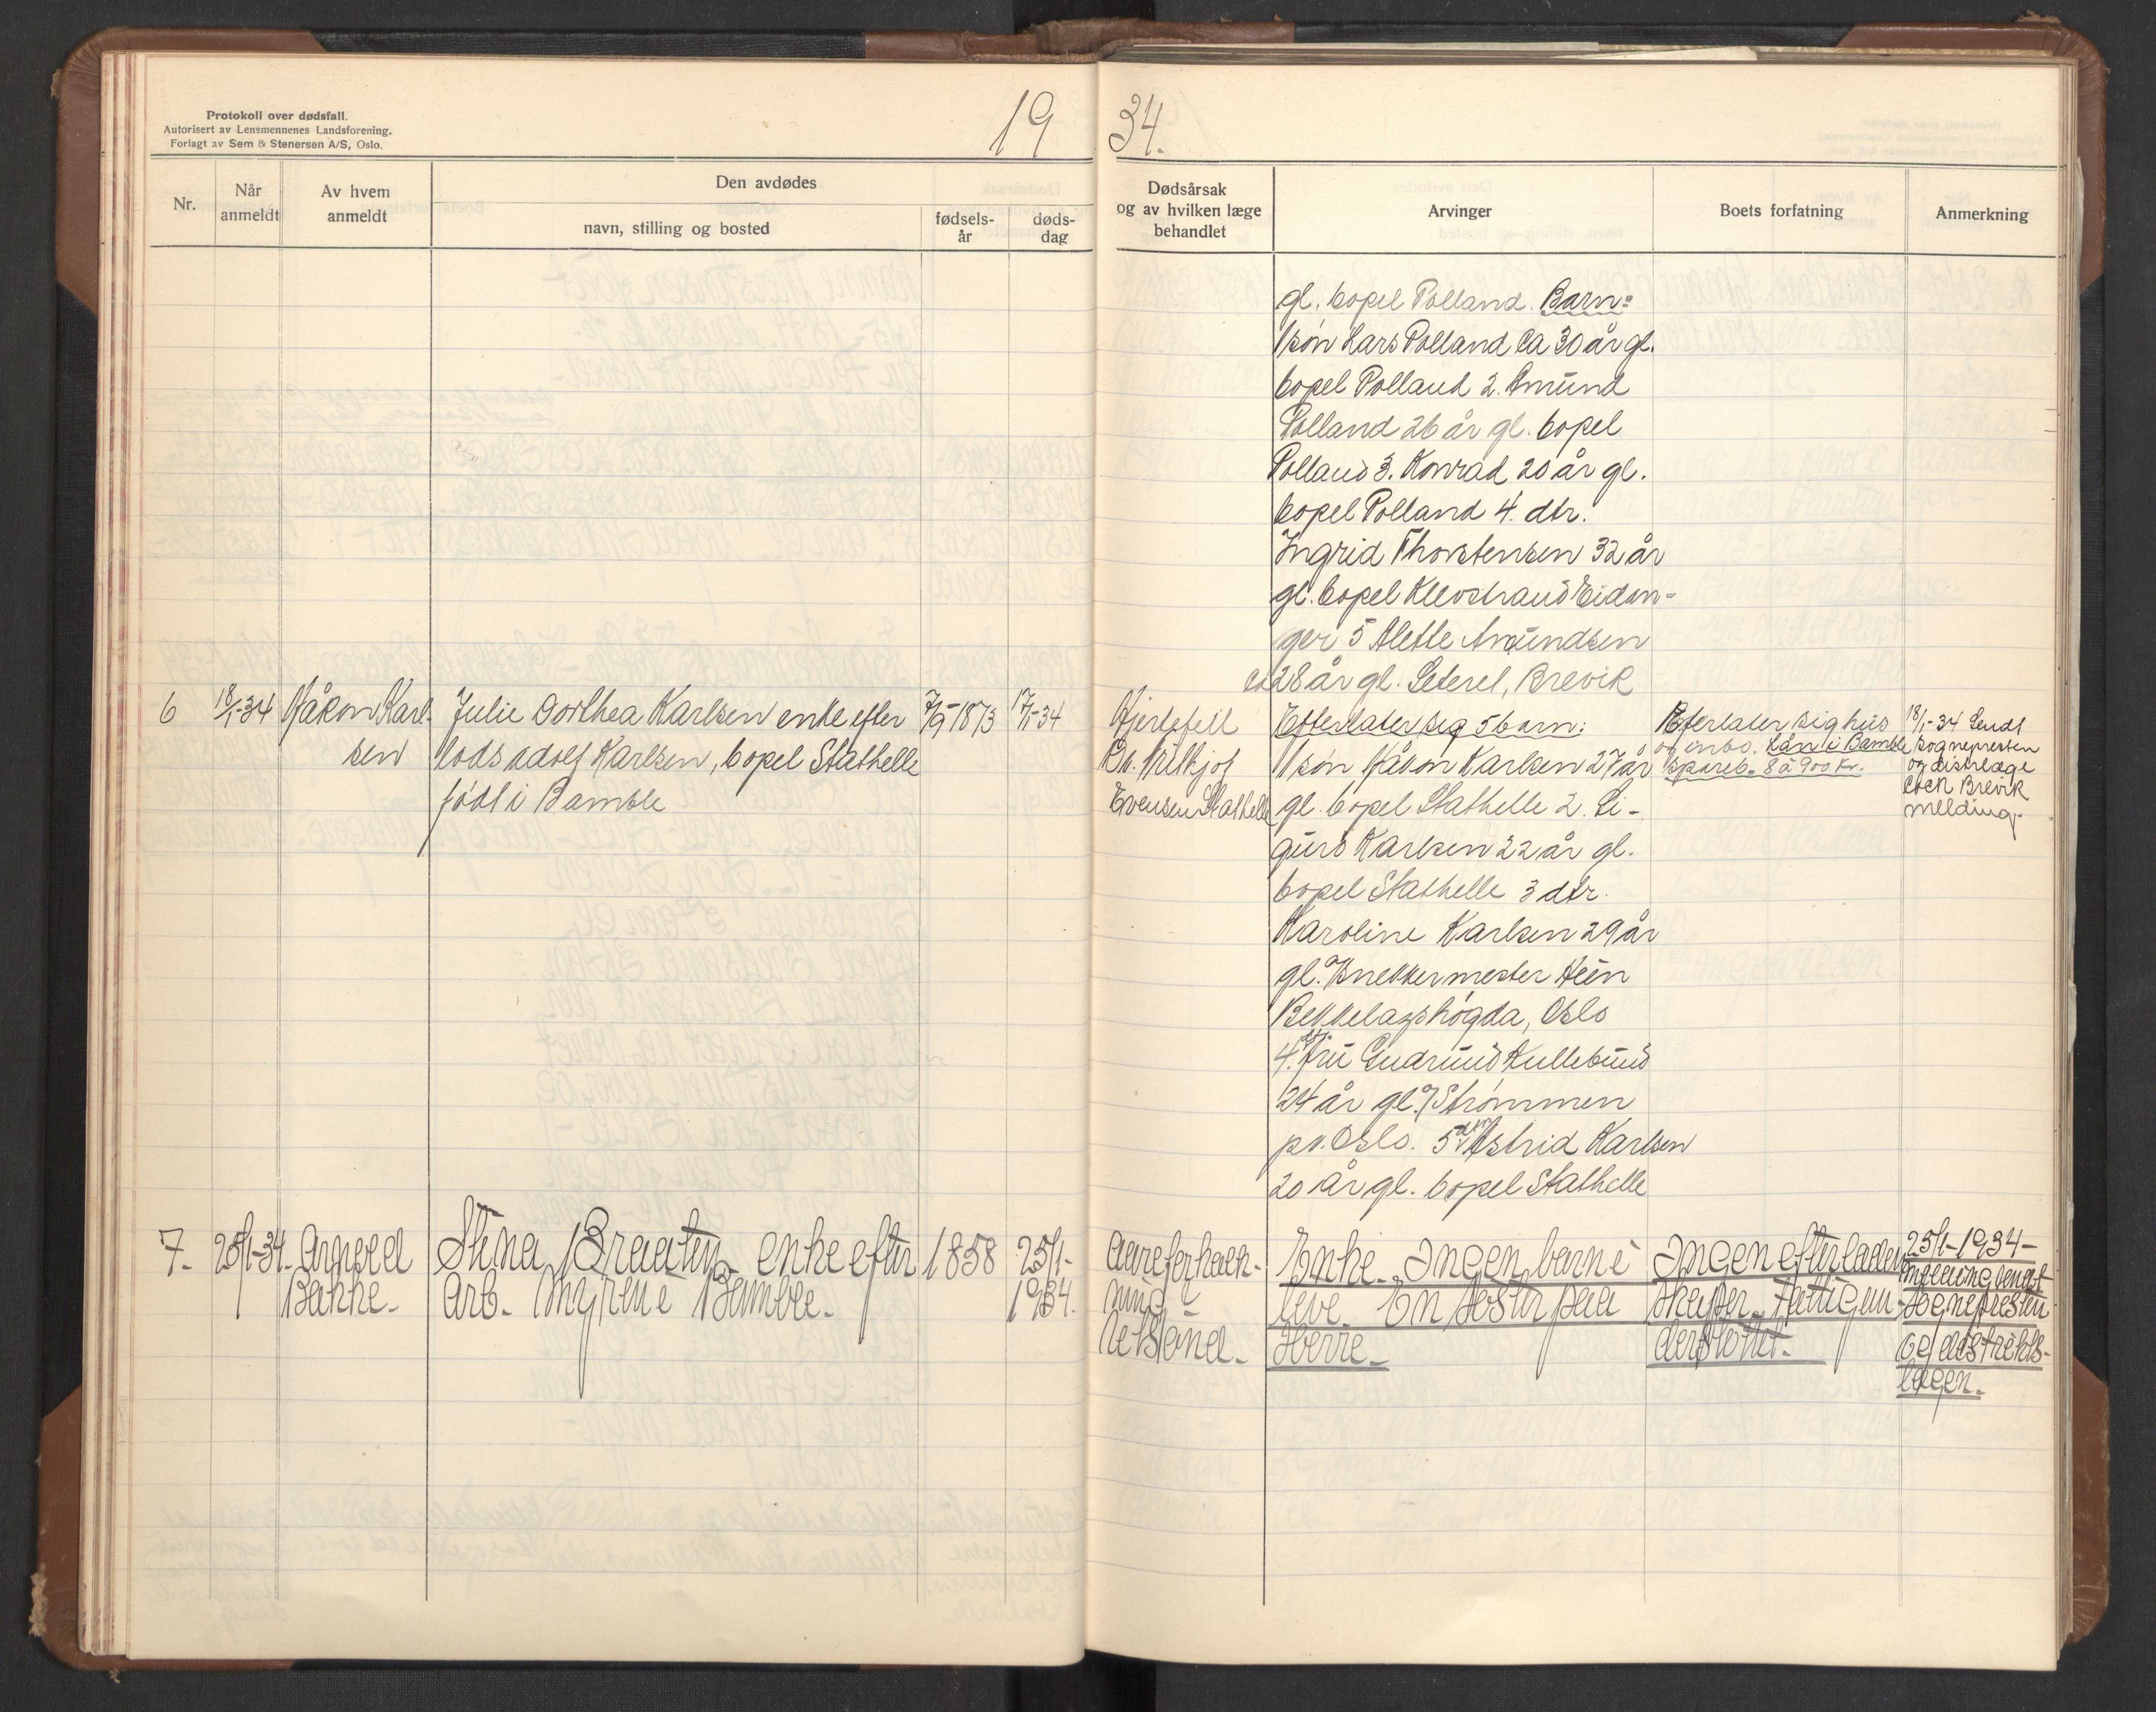 Protokoll over dødsfall.
Autorisert av Lensmennenes Landsforening.
Forlagt av Sem & Stenersen A/S, Oslo.
19
34.
Nr.
Når
anmeldt
Av hvem
anmeldt
Den avdødes
navn, stilling og bosted
fødsels-
år
døds-
dag
Dødsårsak
og av hvilken læge
behandlet
Arvinger
Boets forfatning
Anmerkning
gl. bopel Polland. Barn:
1 søn Lars Polland Ca 30 år gl.
bopel Polland 2. Amund
Polland 26 år gl. bopel
Polland 3. Konrad 20 år gl.
bopel Polland 4. dtr.
Ingrid Thorstensen 32 år
gl. bopel Klevstrand Eidan-
ger 5 Alette Amundsen
ca 28 år gl. Seterel, Brevik
6
18/1-34
Håkon Karl-
sen
Julie Dorthea Karlsen enke efter
lods Adolf Karlsen, bopel Stathelle
født i Bamble
7/9-1873
17/1-34
Hjertefeil
Dr. Fritkjof
Evensen Stathelle
Efterlater sig 5 barn:
1 søn Håkon Karlsen 27 år
gl. bopel Stathelle 2. Si-
gurd Karlsen 22 år gl.
bopel Stathelle 3 dtr.
Karoline Karlsen 29 år
gl. Snekkermester
Bekkelagshøgda, Oslo
4. dtr. Fru Gudrund Kullebund
24 år gl. Strømmen
pr. Oslo. 5 dtr Astrid Karlsen
20 år gl. bopel Stathelle
Efterlater sig hus
og innbo. Lån i Bamble
Spareb. 8 à 900 kr.
18/1-34 Sendt
sognepresten
og distrlæge
Cock Brevik
melding.
7.
25/1-34.
Arnold
Bakke.
Stina Braaten enke efter
Arb. Myrene Bamble.
1858
25/1-
1934.
Aareforkalk-
ning
Enke. Ingen barn i
live. En søster paa
Herre.
Ingen efterladen-
skaper. Fattigun-
derstøttet.
25/1-1934-
melding sendt
sognepresten
og distrikts-
lægen.